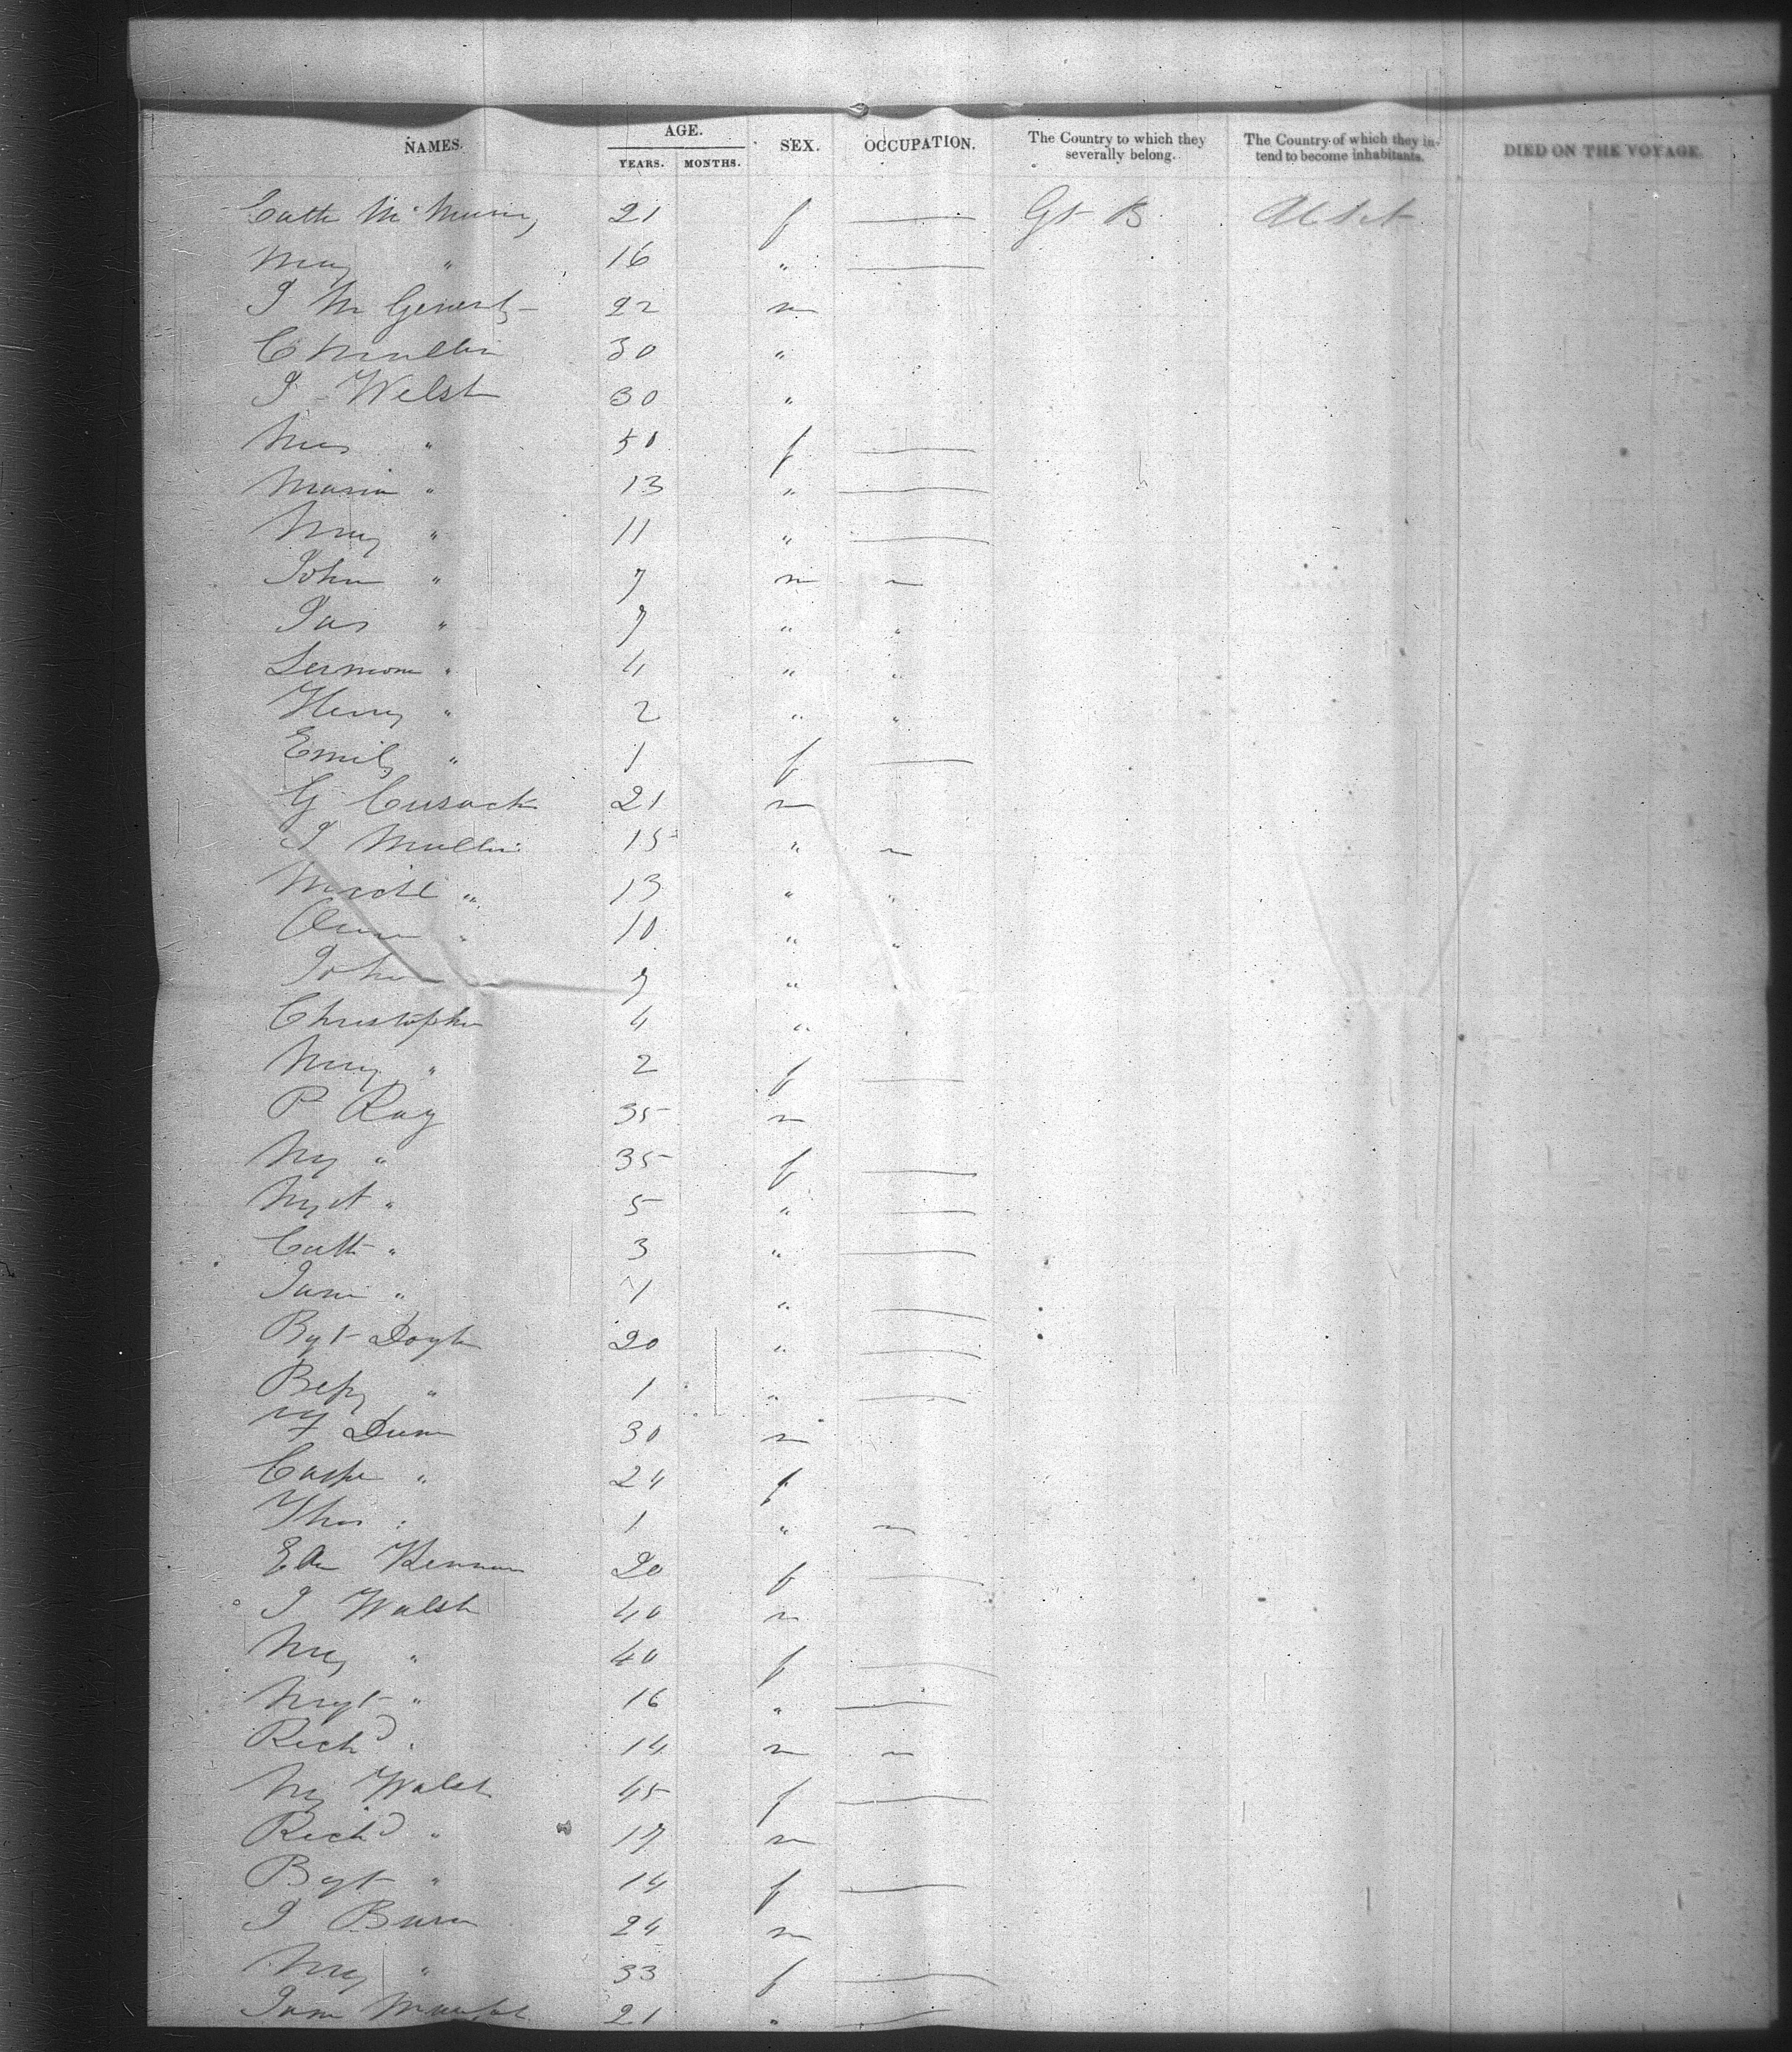 NAMES. AGE. YEARS. MONTHS. SEX. OCCUPATION. The Country to which they severally belong. The Country of which they intend to become inhabitants. DIED ON THE VOYAGE.
Cath 21 f — Gt B
Mary " 16 " —
22 m
C Mullin 30 "
J Welsh 30 "
" 50 f —
Maria " 13 " —
Mary " 11 " —
John " 7 m
Jas " 7 " "
" 4 " "
Henry " 2 " "
Emily " 1 f —
G Cusack 21 m
J Mullin 15 "
Michl " 13 " "
" 10 " "
John 7 "
Christopher 4 "
Mary " 2 f —
P Ray 35 m
My " 35 f —
" 5 " —
Cath " 3 " —
Jane " " —
Bgt Doyle 20 " —
Betsy " 1 " —
Dunn 30 m
" 24 f
Thos " 1 "
20 f —
J Walsh 40 m
Mry " 40 f —
Mrgt " 16 " —
Richd " 14 m
My Walsh 45 f —
Richd " 17 m
Bgt " 14 f —
J 24 m
Mry " 33 f —
Jane 21 " —